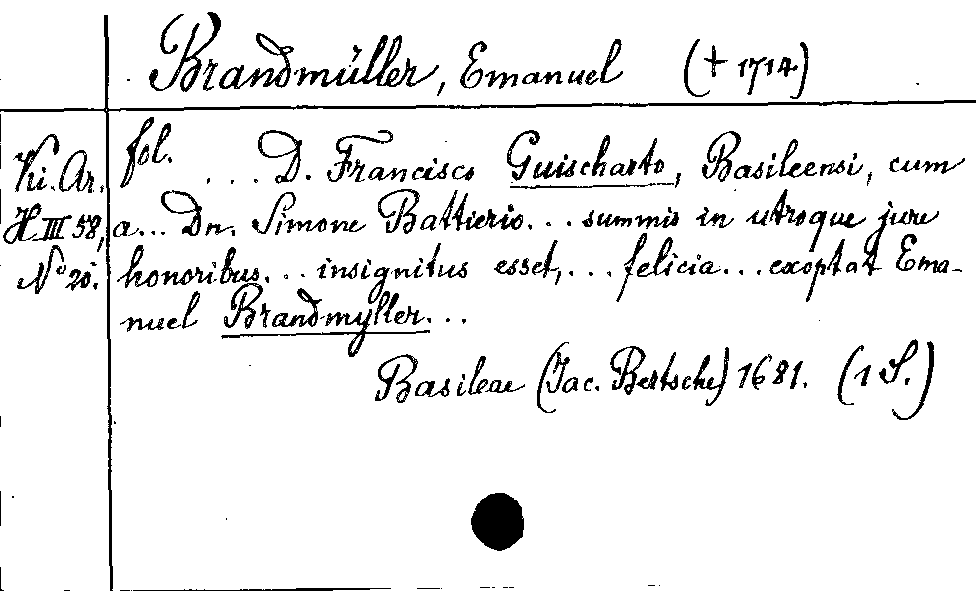 Brandmüller, Emanuel († 1714)
fol. ... D. Francisco Guischarto, Basileensi, cum
Ki. Ar.
H III 58, a... Dn. Simone Battierio... summis in utroque jure
No 20. honoribus... insignitus esset,... felicia... exoptat Ema-
nuel Brandmyller...
Basileae (Jac. Bertsche) 1681. (1 S.)